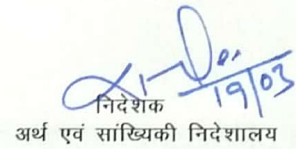 19/03
निदेशक
अर्थ एवं सांख्यिकी निदेशालय